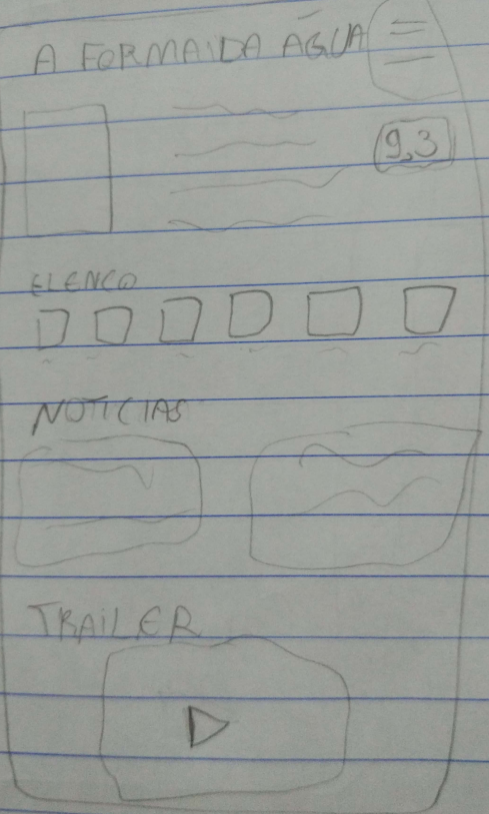 A FORMA DA ÁGUA
9,3
ELENCO
NOTICIAS
TRAILER